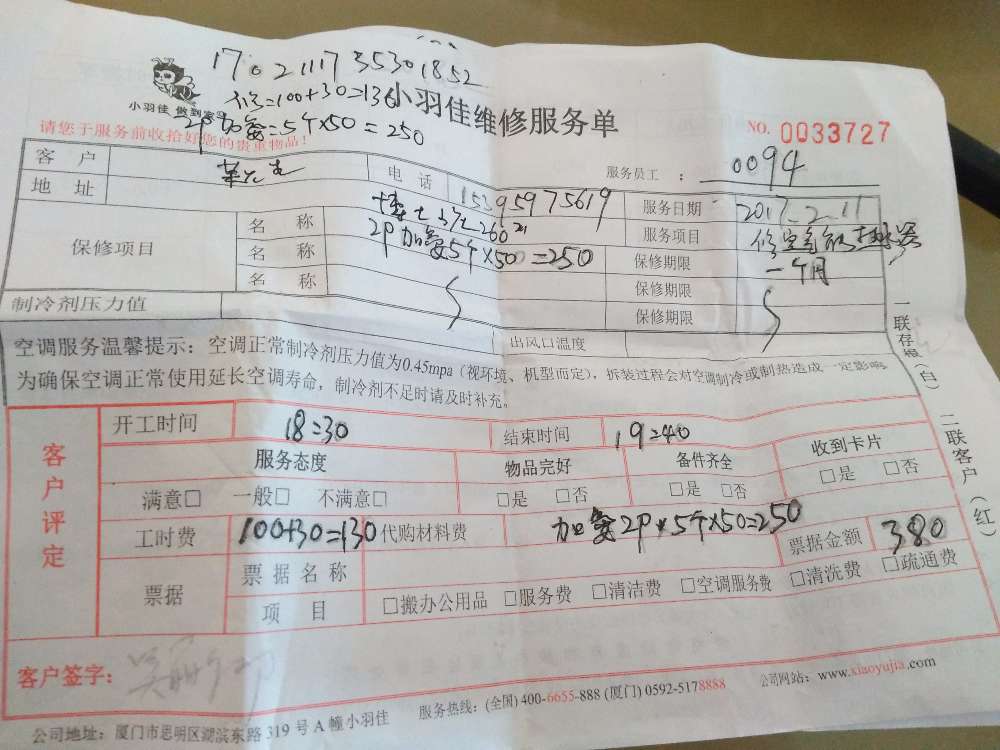 17021117 35301852
修=100+30=130
2P加氨=5个×50=250
小羽佳 做到家
小羽佳维修服务单
请您于服务前收拾好您的贵重物品！
NO. 0033727
服务员工 : 0094
客 户 电 话 15395975619 服务日期 2017.2.11
地 址 服务项目 修空气能热水器
保修项目 名 称 保修期限 一个月
名 称 2P加氨5个×50=250 保修期限
名 称 保修期限
制冷剂压力值 出风口温度
空调服务温馨提示：空调正常制冷剂压力值为0.45mpa（视环境、机型而定），拆装过程会对空调制冷或制热造成一定影响，
为确保空调正常使用延长空调寿命，制冷剂不足时请及时补充。
一联存根（白） 二联客户（红）
客户评定
开工时间 18:30 结束时间 19:40
服务态度 物品完好 备件齐全 收到卡片
满意□ 一般□ 不满意□ □是 □否 □是 □否 □是 □否
工时费 100+30=130 代购材料费 加氨2P×5个×50=250 票据金额 380
票据 票据名称
项 目 □搬办公用品 □服务费 □清洁费 □空调服务费 □清洗费 □疏通费
客户签字：
公司地址：厦门市思明区湖滨东路319号A幢小羽佳 服务热线：(全国) 400-6655-888 (厦门) 0592-5178888 公司网站：www.xiaoyujia.com